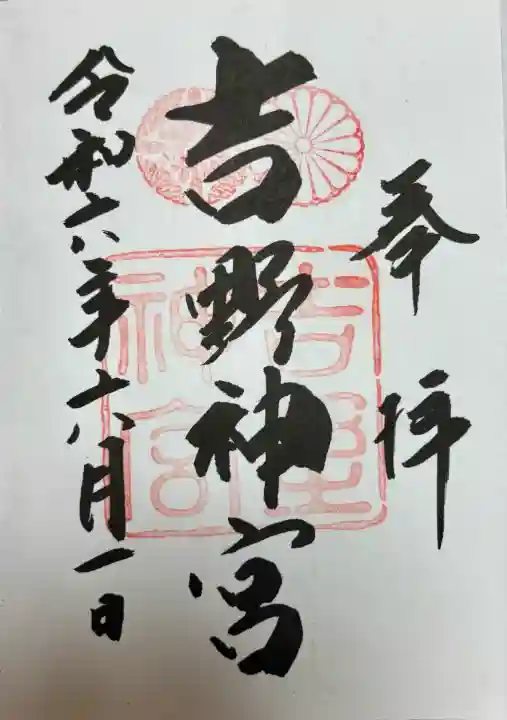 奉拝
吉野神宮
令和六年六月一日
吉野
神宮